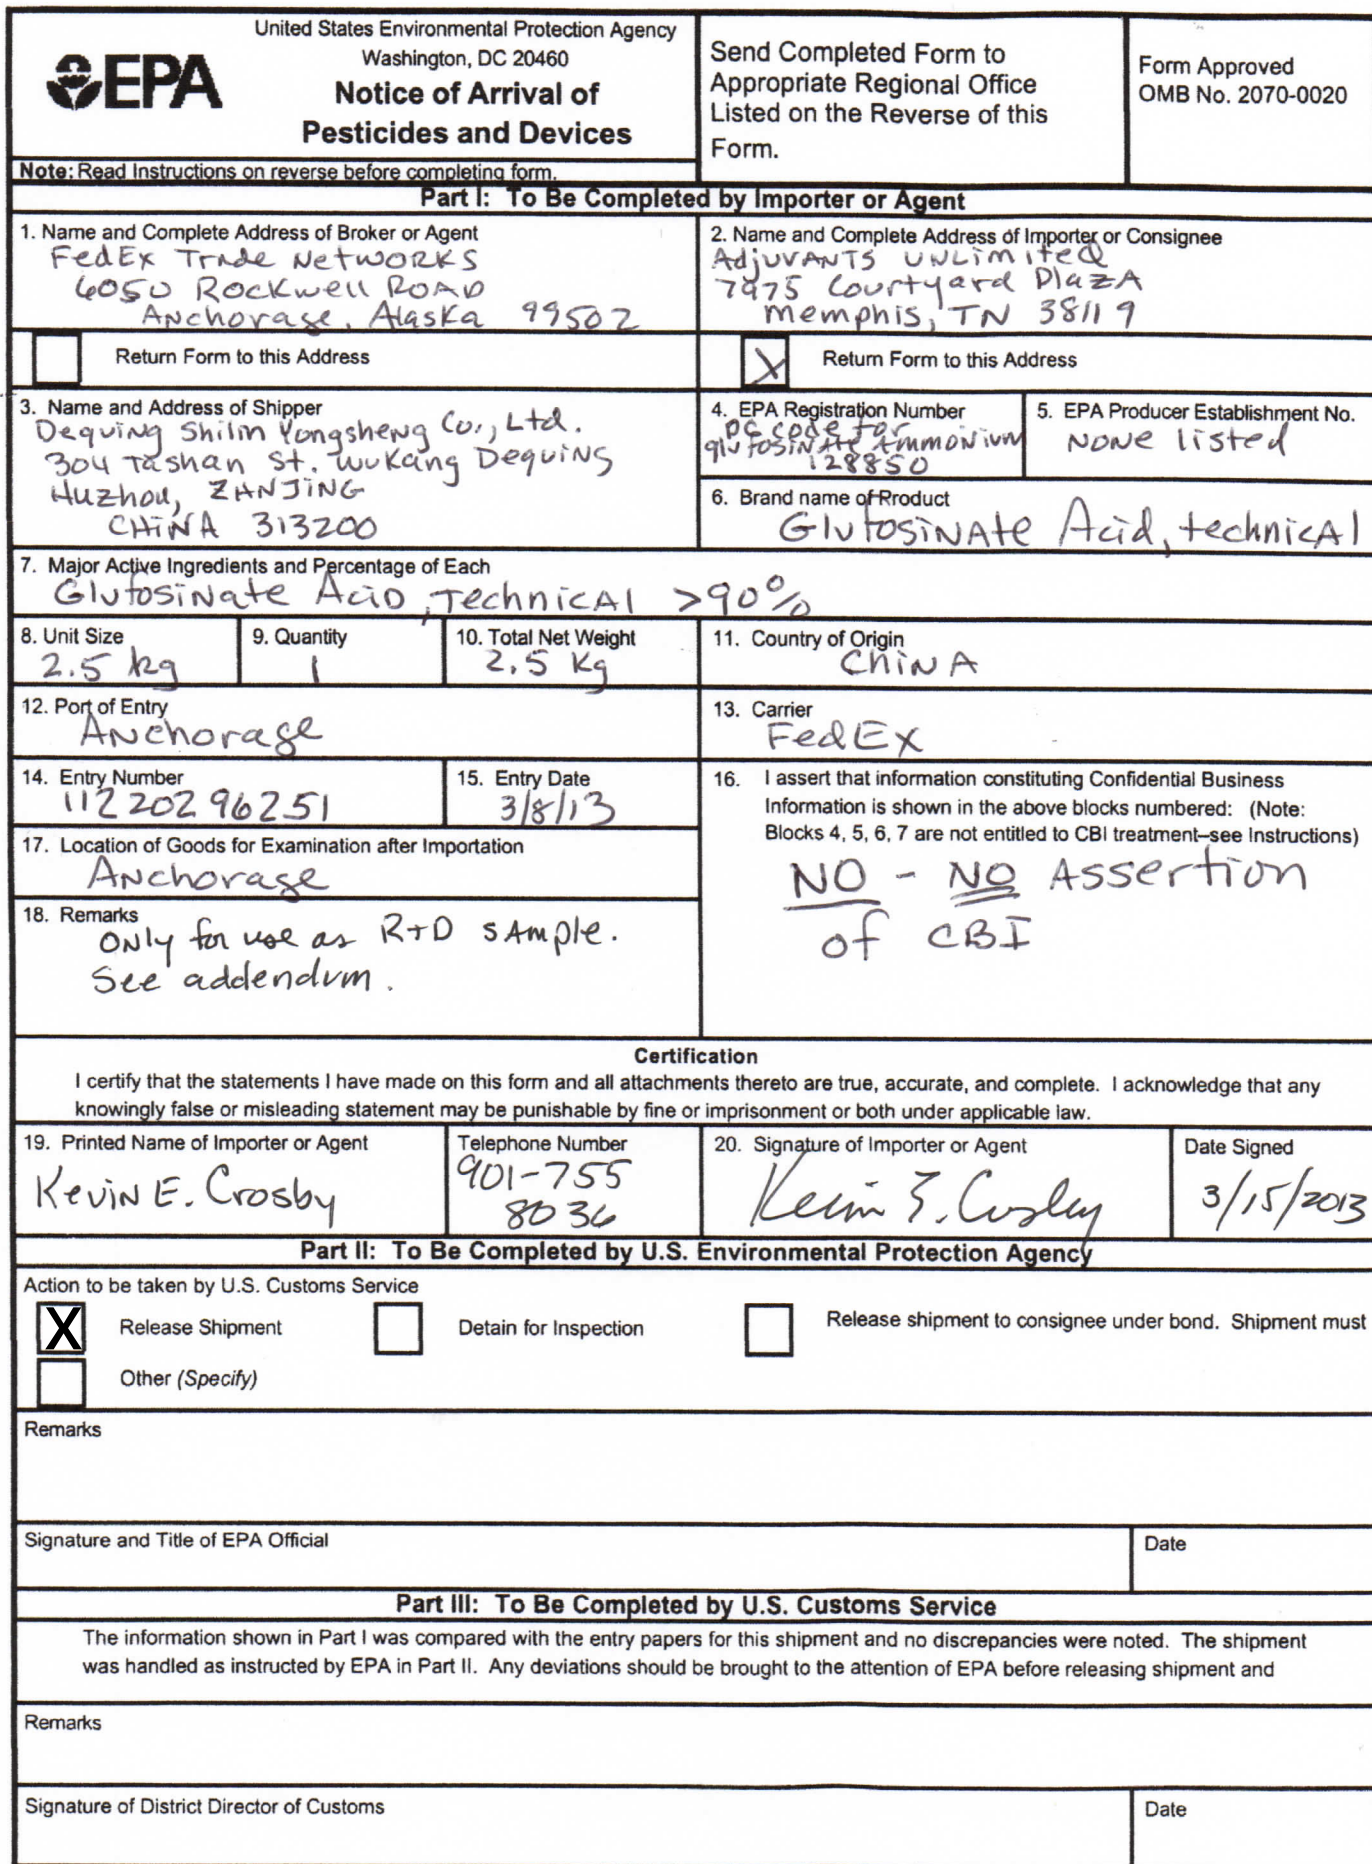 EPA
United States Environmental Protection Agency
Washington, DC 20460
Notice of Arrival of
Pesticides and Devices
Note: Read Instructions on reverse before completing form.
Send Completed Form to
Appropriate Regional Office
Listed on the Reverse of this
Form.
Form Approved
OMB No. 2070-0020
Part I: To Be Completed by Importer or Agent
1. Name and Complete Address of Broker or Agent
FedEx Trade Networks
6050 Rockwell Road
Anchorage, Alaska 99502
Return Form to this Address
2. Name and Complete Address of Importer or Consignee
Adjuvants Unlimited
7975 Courtyard Plaza
Memphis, TN 38119
X Return Form to this Address
3. Name and Address of Shipper
Dequing Shilin Yongsheng Co., Ltd.
304 Tashan St. Wukang Dequing
Huzhou, ZHNJING
CHINA 313200
4. EPA Registration Number
PC code for
glufosinate Ammonium
128850
5. EPA Producer Establishment No.
None listed
6. Brand name of Product
Glufosinate Acid, technical
7. Major Active Ingredients and Percentage of Each
Glufosinate Acid, Technical >90%
8. Unit Size
2.5 kg
9. Quantity
1
10. Total Net Weight
2.5 Kg
11. Country of Origin
China
12. Port of Entry
Anchorage
13. Carrier
FedEx
14. Entry Number
11220296251
15. Entry Date
3/8/13
16. I assert that information constituting Confidential Business
Information is shown in the above blocks numbered: (Note:
Blocks 4, 5, 6, 7 are not entitled to CBI treatment–see Instructions)
NO - NO Assertion
of CBI
17. Location of Goods for Examination after Importation
Anchorage
18. Remarks
Only for use as R+D sample.
See addendum.
Certification
I certify that the statements I have made on this form and all attachments thereto are true, accurate, and complete. I acknowledge that any
knowingly false or misleading statement may be punishable by fine or imprisonment or both under applicable law.
19. Printed Name of Importer or Agent
Kevin E. Crosby
Telephone Number
901-755
8036
20. Signature of Importer or Agent
Kevin E. Crosby
Date Signed
3/15/2013
Part II: To Be Completed by U.S. Environmental Protection Agency
Action to be taken by U.S. Customs Service
X Release Shipment
Detain for Inspection
Release shipment to consignee under bond. Shipment must
Other (Specify)
Remarks
Signature and Title of EPA Official
Date
Part III: To Be Completed by U.S. Customs Service
The information shown in Part I was compared with the entry papers for this shipment and no discrepancies were noted. The shipment
was handled as instructed by EPA in Part II. Any deviations should be brought to the attention of EPA before releasing shipment and
Remarks
Signature of District Director of Customs
Date